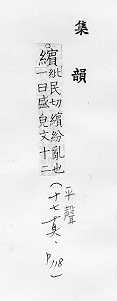 集韻
繽
紕民切繽紛亂也
一曰盛皃文十二
(平聲
十七真.P118)